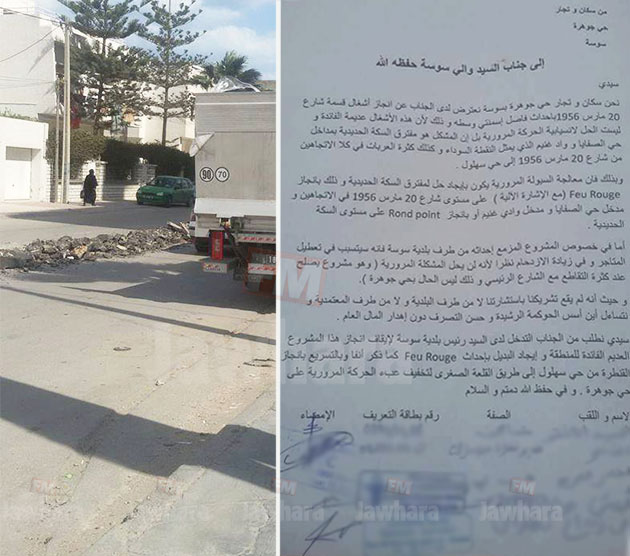 من سكان و تجار
حي جوهرة
سوسة
إلى جناب السيد والي سوسة حفظه الله
سيدي
نحن سكان و تجار حي جوهرة بسوسة نعترض لدى الجناب عن انجاز أشغال قسمة شارع
20 مارس 1956 بإحداث فاصل إسمنتي وسطه و ذلك لأن هذه الأشغال عديمة الفائدة و
ليست الحل لانسيابية الحركة المرورية بل إن المشكل هو مفترق السكة الحديدية بمداخل
حي الصفايا و واد غنيم الذي يمثل النقطة السوداء و كذلك كثرة العربات في كلا الاتجاهين
من شارع 20 مارس 1956 إلى حي سهلول.
وبذلك فان معالجة السيولة المرورية يكون بإيجاد حل لمفترق السكة الحديدية و ذلك بانجاز
Feu Rouge (مع الإشارة الآلية ) على مستوى شارع 20 مارس 1956 في الاتجاهين و
مدخل حي الصفايا و مدخل وادي غنيم أو بانجاز Rond point على مستوى السكة
الحديدية.
أما في خصوص المشروع المزمع إحداثه من طرف بلدية سوسة فانه سيتسبب في تعطيل
المتاجر و في زيادة الازدحام نظرا لأنه لن يحل المشكلة المرورية ( وهو مشروع يصلح
عند كثرة التقاطع مع الشارع الرئيسي و ذلك ليس الحال بحي جوهرة ).
و حيث أنه لم يقع تشريكنا باستشارتنا لا من طرف البلدية و لا من طرف المعتمدية و
نتساءل أين أسس الحوكمة الرشيدة و حسن التصرف دون إهدار المال العام .
سيدي نطلب من الجناب التدخل لدى السيد رئيس بلدية سوسة لإيقاف انجاز هذا المشروع
العديم الفائدة للمنطقة و إيجاد البديل بإحداث Feu Rouge كما ذكر آنفا وبالتسريع بانجاز
القنطرة من حي سهلول إلى طريق القلعة الصغرى لتخفيف عبء الحركة المرورية على
حي جوهرة . و في حفظ الله دمتم و السلام
لاسم و اللقب الصفة رقم بطاقة التعريف الإمضاء
90 70
EM
Jawhara
EM
Jawhara
EM
Jawhara
EM
Jawhara